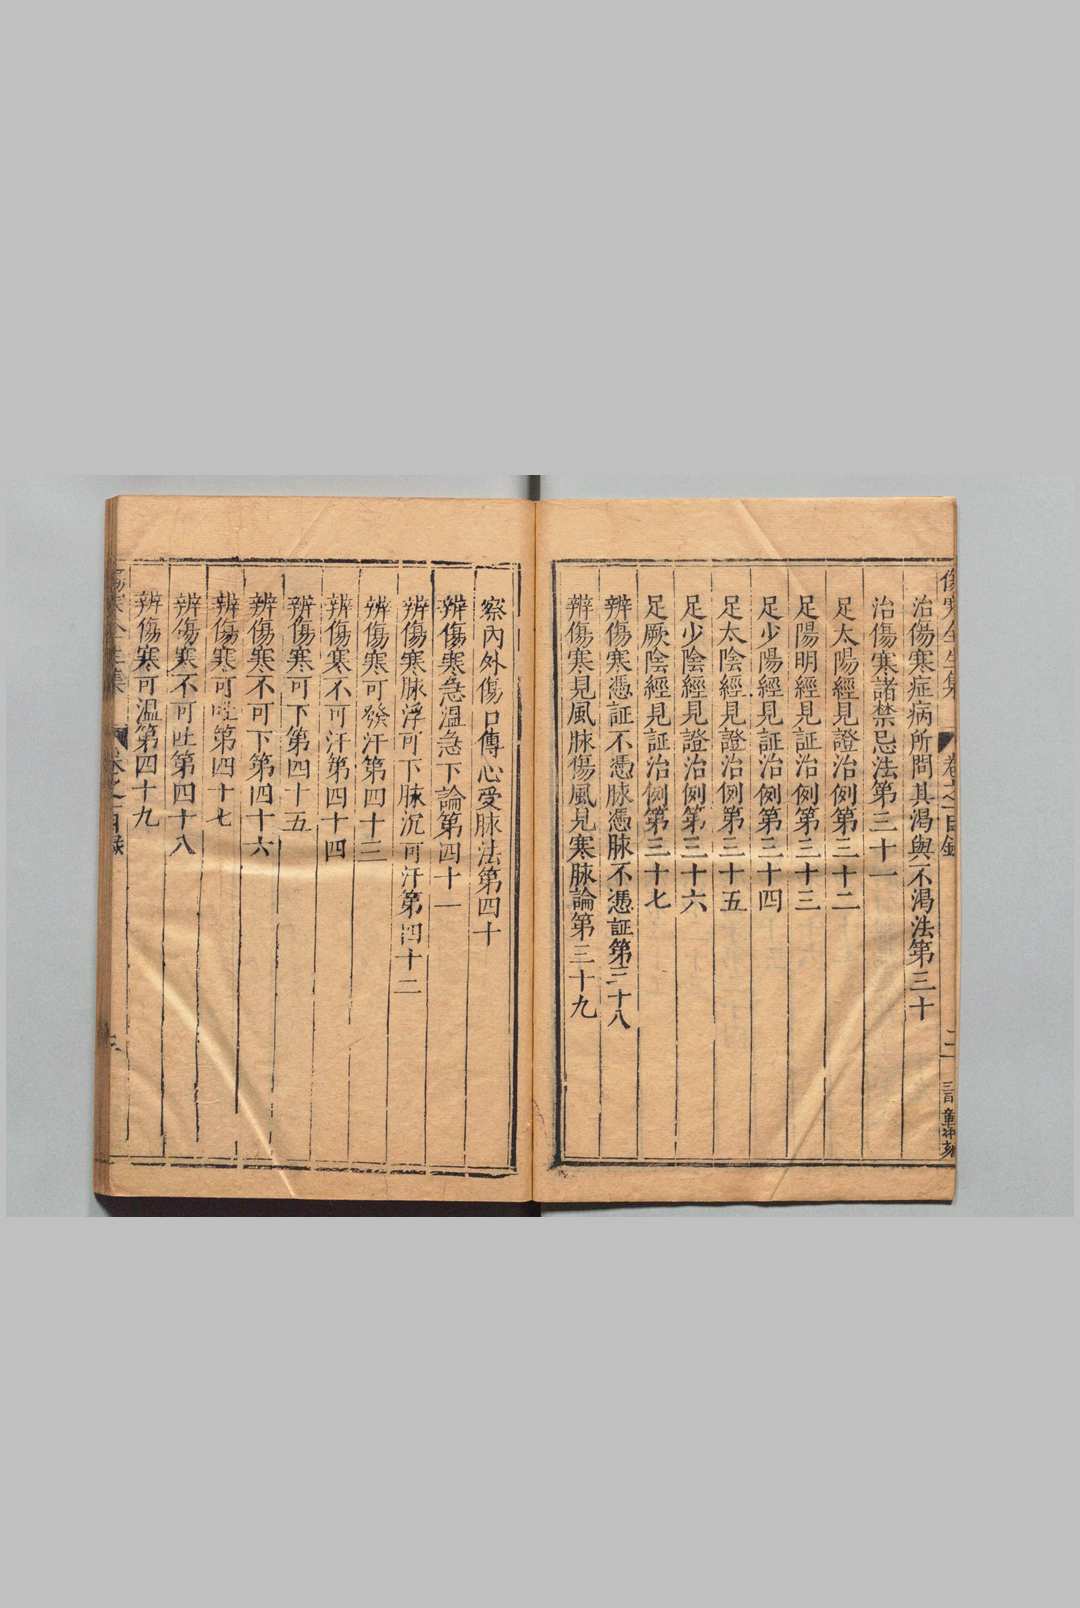 治傷寒症病所問其渴與不渴法第三十
治傷寒諸禁忌法第三十一
足太陽經見證治例第三十二
足陽明經見証治例第三十三
足少陽經見証治例第三十四
足太陰經見證治例第三十五
足少陰經見證治例第三十六
足厥陰經見証治例第三十七
辨傷寒憑証不憑脉憑脉不憑証第三十八
辨傷寒見風脉傷風見寒脉論第三十九
察內外傷口傳心受脉法第四十
辨傷寒急温急下論第四十一
辨傷寒脉浮可下脉沉可汗第四十二
辨傷寒可發汗第四十三
辨傷寒不可汗第四十四
辨傷寒可下第四十五
辨傷寒不可下第四十六
辨傷寒可吐第四十七
辨傷寒不可吐第四十八
辨傷寒可温第四十九